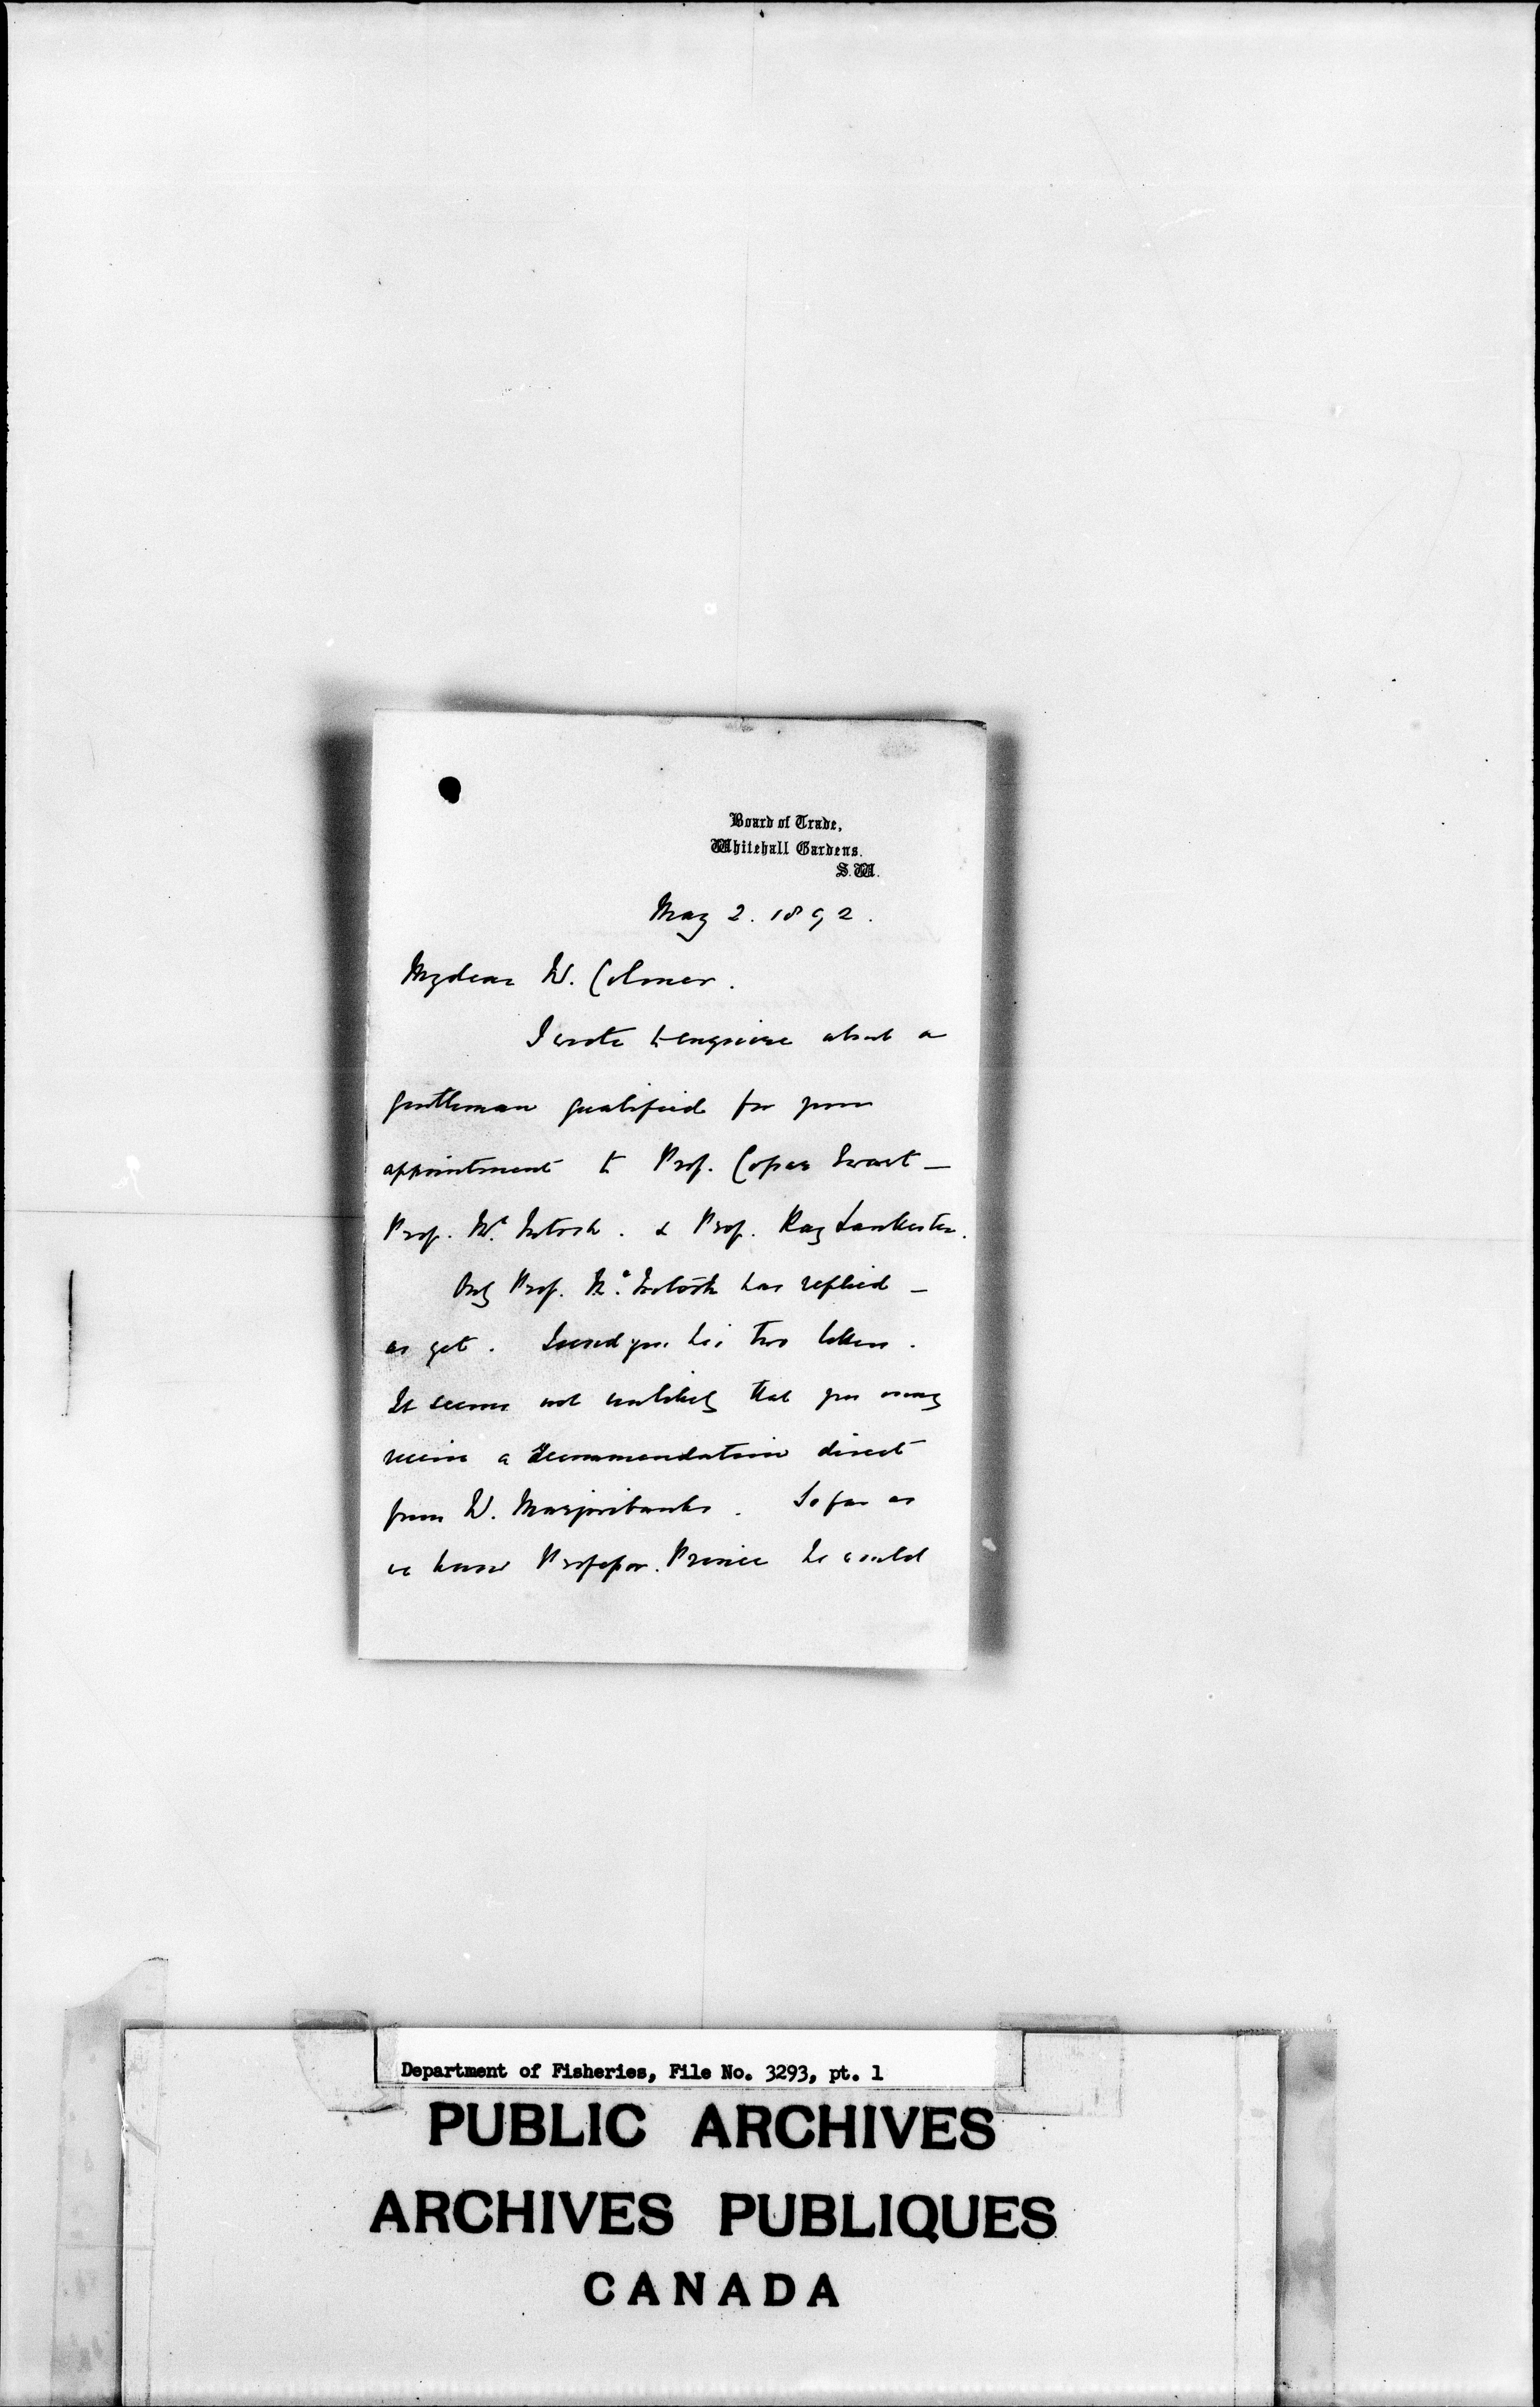 Board of Trade,
Whitehall Gardens.
S.W.
May 2. 1892.
My dear Mr. Colmer.
I wrote to enquire about a
gentleman qualified for your
appointment to Prof. Cossar Ewart —
Prof. McIntosh. & Prof. Ray Lankester.
Only Prof. McIntosh has replied —
as yet. I send you his two letters.
It seems not unlikely that you may
receive a recommendation direct
from Mr. Marjoribanks. So far as
we know Professor. Prince he would
Department of Fisheries, File No. 3293, pt. 1
PUBLIC ARCHIVES
ARCHIVES PUBLIQUES
CANADA